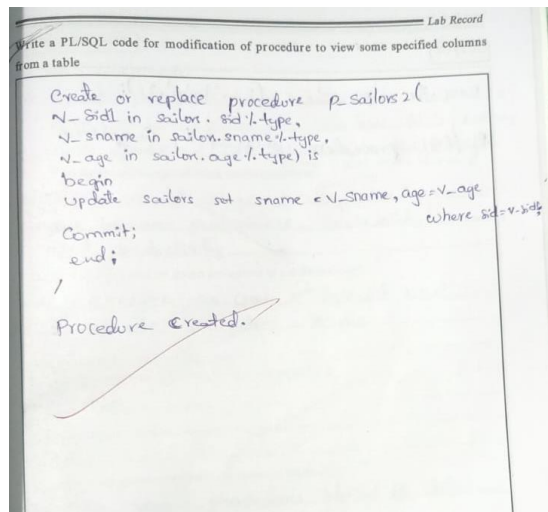 Lab Record
Write a PL/SQL code for modification of procedure to view some specified columns
from a table
Create or replace procedure P_Sailors2(
v_Sid1 in sailors.sid%type,
v_sname in sailors.sname%type,
v_age in sailors.age%type) is
begin
update sailors set sname = v_sname, age=v_age
where sid=v-sid1;
Commit;
end;
/
Procedure Created.